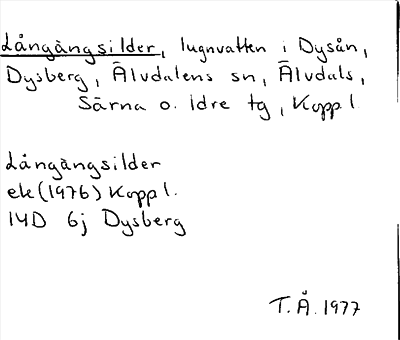 Långängsilder, lugnvatten i Dysån,
Dysberg, Älvdalens sn, Älvdals,
Särna o. Idre tg, Koppl
Långängsilder
ek (1976) Koppl.
14D 6j Dysberg
T.Å. 1977